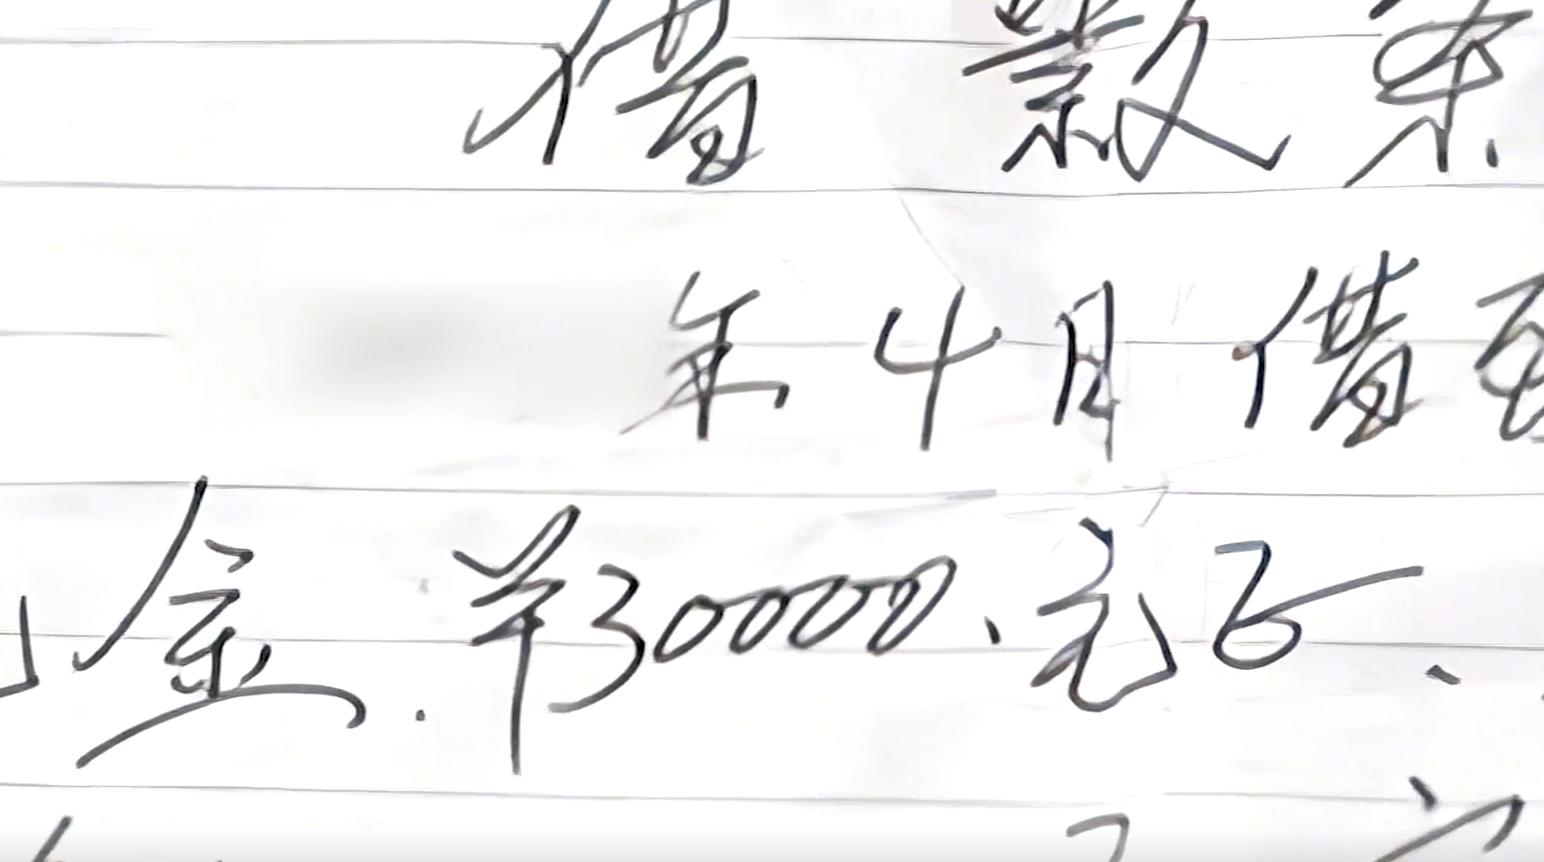 借款条
年4月借
金.¥30000、元正、